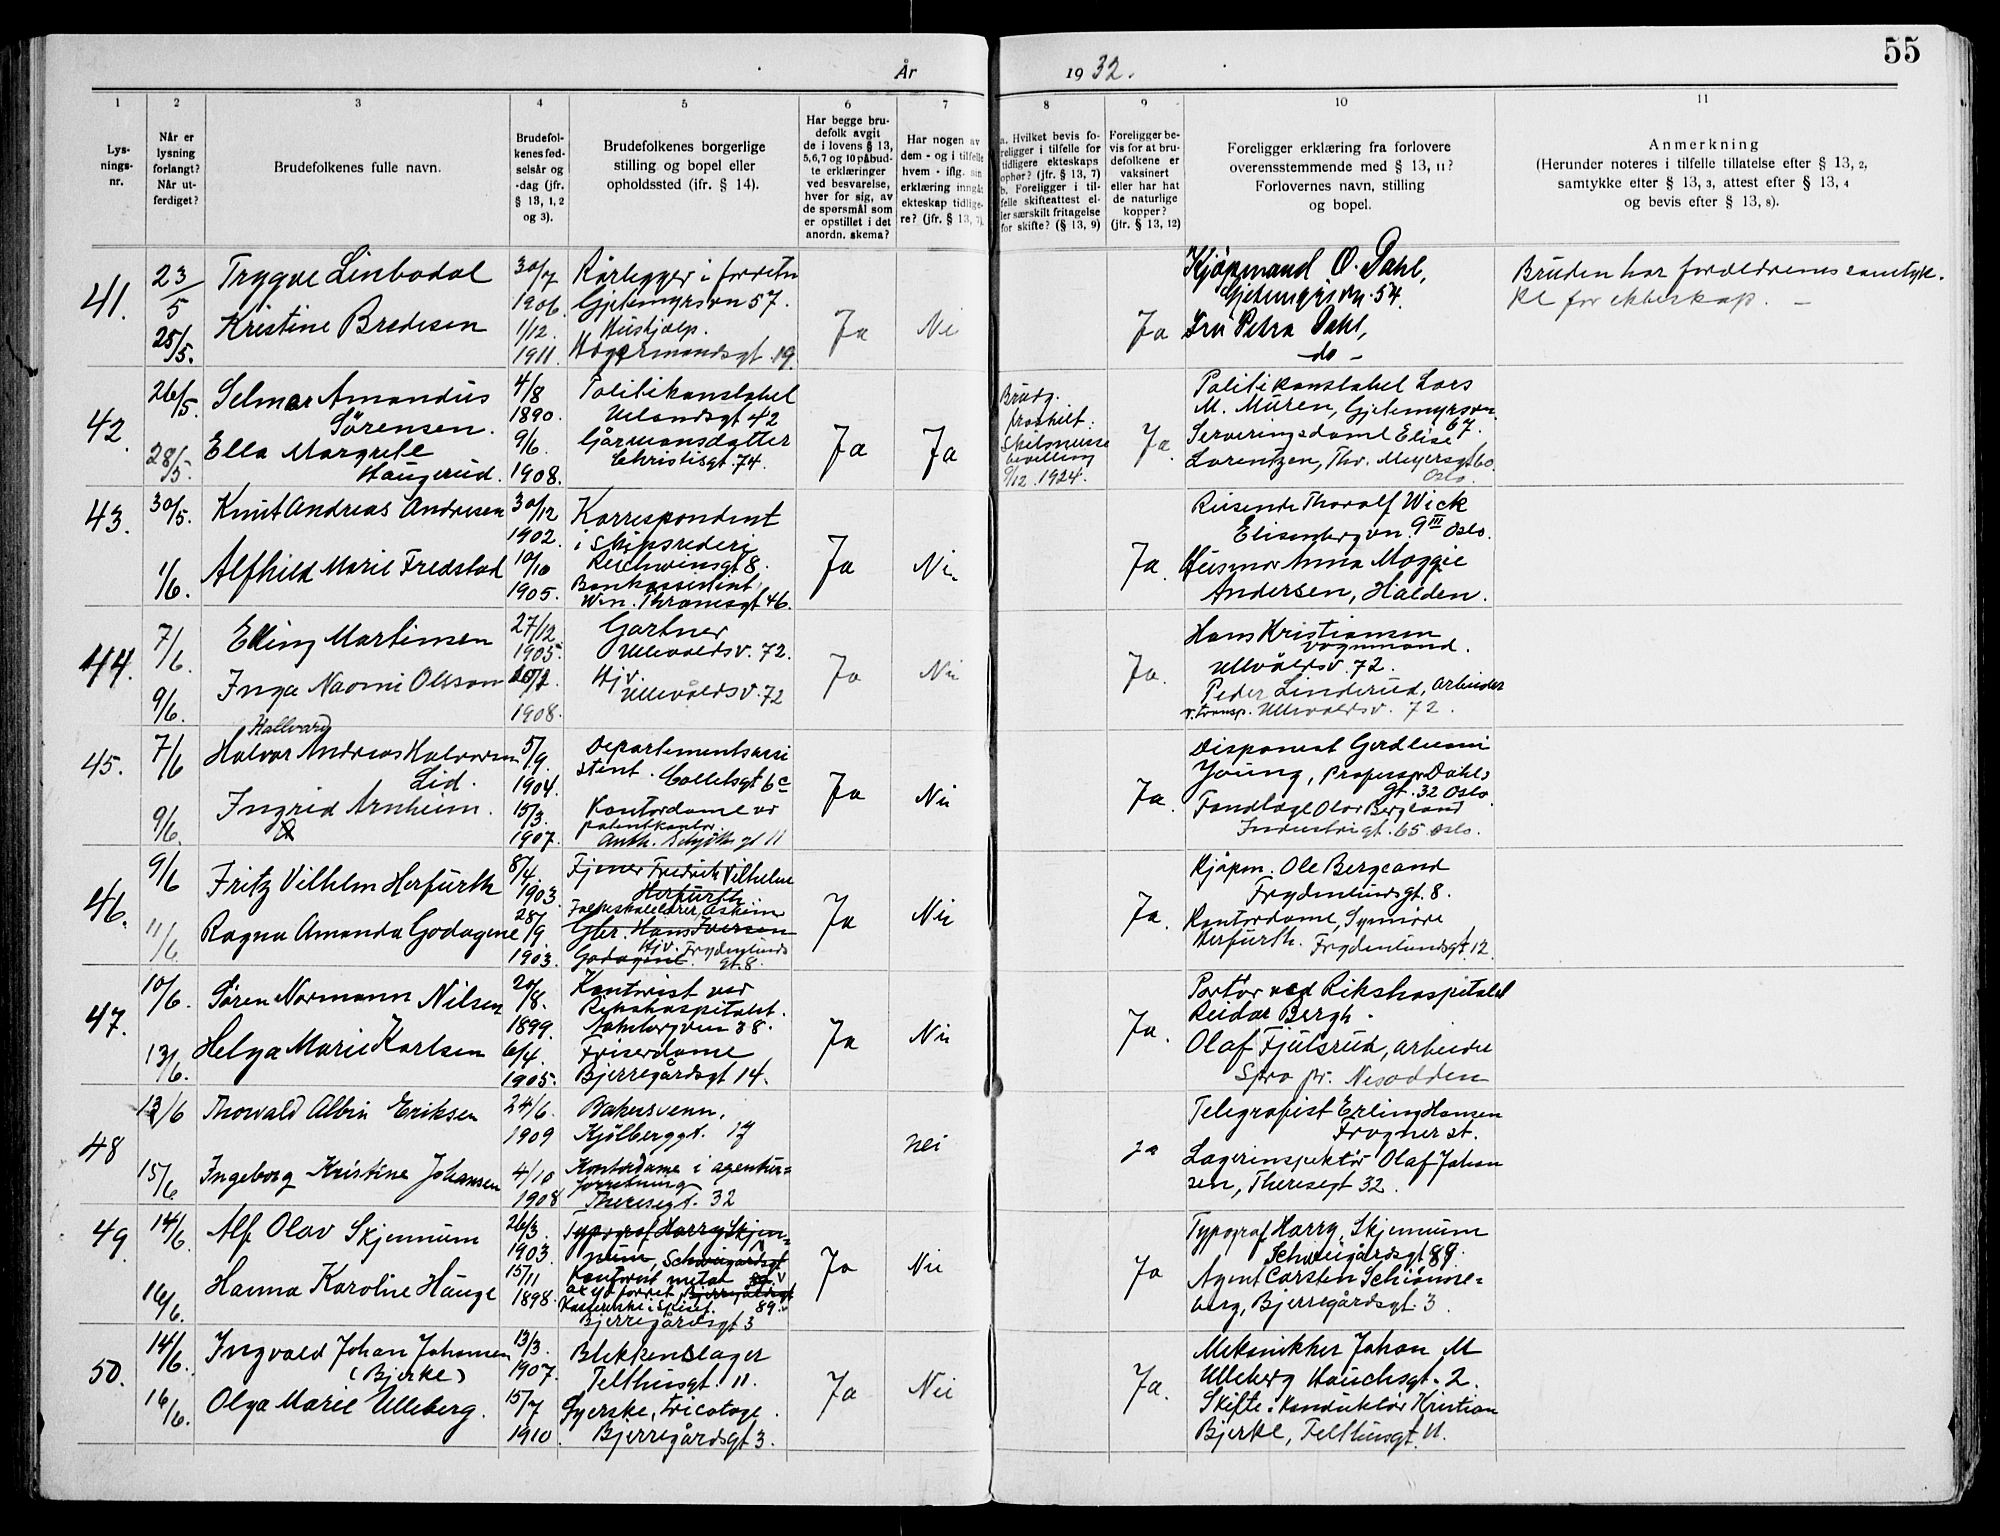 55
År 1932.
1 2 3 4 5 6 7 8 9 10 11
Lys-
nings-
nr.
Når er
lysning
forlangt?
Når ut-
ferdiget?
Brudefolkenes fulle navn.
Brudefol-
kenes fød-
selsår og
-dag (jfr.
§ 13, 1, 2
og 3).
Brudefolkenes borgerlige
stilling og bopel eller
opholdssted (jfr. § 14).
Har begge bru-
defolk avgit
de i lovens § 13,
5,6,7 og 10 påbud-
te erklæringer
ved besvarelse,
hver for sig, av
de spørsmål som
er opstillet i det
anordn. skema?
Har nogen av
dem - og i tilfelle
hvem - iflg. sin
erklæring inngåt
ekteskap tidlige-
re? (jfr. § 13, 7).
a. Hvilket bevis fo-
religger i tilfelle for
tidligere ekteskaps
ophør? (jfr. § 13, 7)
b. Foreligger i til-
felle skifteattest el-
ler særskilt fritagelse
for skifte? (§ 13, 9)
Foreligger be-
vis for at bru-
defolkene er
vaksinert
eller har hat
de naturlige
kopper?
(jfr. § 13, 12)
Foreligger erklæring fra forlovere
overensstemmende med § 13, 11?
Forlovernes navn, stilling
og bopel.
Anmerkning
(Herunder noteres i tilfelle tillatelse efter § 13, 2,
samtykke efter § 13, 3, attest efter § 13, 4
og bevis efter § 13, 8).
41.
23/5
25/5.
Trygve Linbodal
Kristine Bredesen
30/7
1906.
1/12.
1911.
Rørlegger i forretn
Gjetemyrsvn 57.
Hushjelp.
Hegermandsgt. 19.
Ja
Nei
Ja
Kjøpmand O. Dahl,
Gjetemyrsvn. 54.
Fru Petra Dahl,
- do -
Bruden har foreldrenes samtyk-
ke for ekteskap. -
42.
26/5.
28/5.
Selmer Amandus
Sørensen.
Ella Margrete
Haugerud.
4/8
1890.
9/6.
1908.
Politikonstabel
Uelandsgt 42
Gårmansdatter
Christisgt. 74.
Ja
Ja
Brudg.
fraskilt:
Skilsmisse
bevilling
9/12. 1924.
Ja.
Politikonstabel Lars
M. Muren, Gjetemyrsvn.
67.
Serveringsdame Elise
Lorentzen, Thv. Meyersgt 60
Oslo.
43.
30/5.
1/6.
Knut Andreas Andresen
Alfhild Marie Fredstad
30/12
1902.
10/10
1905.
Korrespondent
i Skipsrederi
Reichweinsgt 8.
Bankassistent,
Wm. Thranesgt 46.
Ja
Nei
Ja.
Reisende Thoralf Wick
Elisenbergvn. 9 III Oslo.
Husmor Anna Maggie
Andersen, Halden.
44.
7/6
9/6.
Elling Martinsen
Inga Naomi Olsson
27/12
1905.
1908.
Gartner
Ullevoldsv. 72.
Hjv.
Ullevåldsv. 72
Ja
Nei
Ja.
Hans Kristiansen
vognmand.
Ullvåldsv. 72.
Peder Linderud, arbeider
v. transp. Ullevoldsv. 72.
45.
7/6
9/6.
Hallvard
Halvar Andreas Halvorsen
Lid.
Ingrid Arnheim.
5/9.
1904.
15/3.
1907.
Departementsassi
stent. Colletsgt 6c
Kontordame ved
patentkontor.
Anth. Schjøths gt 11
Ja
Nei
Ja.
Disponent Gerd Leumi
Young, Professor Dahls
gt. 32 Oslo.
Tandlæge Olav Bergland
Industrigt. 65. Oslo.
46.
9/6
11/6.
Fritz Vilhelm Herfurth
Ragna Amanda Godagene
8/4.
1903.
28/9.
1903.
Tjener Fredrik Vilhelm
Herfurth
Folkeskolelærer, Askim
Gbr. Hans Iversen
Hjv. Frydenlunds
Godagene. gt. 8.
Ja
Nei
Ja.
Kjøpm. Ole Bergland
Frydenlundsgt. 8.
Kontordame, Synnøve
Herfurth. Frydenlundsgt 12.
47.
10/6.
13/6.
Søren Normann Nilsen
Helga Marie Karlsen
20/8.
1899.
6/4.
1905.
Kontorist ved
Rikshospitalet.
Nobelsgvn 38.
Friserdame
Bjerregårdsgt 14.
Ja
Nei
Ja.
Portør ved Rikshospitalet
Reidar Bergh.
Olaf Fjulsrud, arbeider
Spro pr. Nesodden
48
13/6
15/6.
Thorvald Albin Eriksen
Ingeborg Kristine Johansen
24/6.
1909
4/10
1908
Bakersvenn,
Kjølberggt. 17
Kontordame i agentur=
forretning
Theresegt. 32
nei
ja
Telegrafist Erling Hansen
Frogner st.
Lagerinspektør Olaf Johan
sen, Theresegt 32.
49.
14/6.
16/6.
Alf Olav Skjennum
Hanna Karoline Hauge
26/3.
1903.
15/11
1898.
Typograf Harry Skjen-
num, Schweigårdsgt
Kontorist metal
Bjerregårdsgt
89.
Kassererske i Spiset.
Bjerregårdsgt 3
Ja
Nei
Ja
Typograf Harry, Skjennum
Schweigårdsgt 89.
Agent Carsten Schiønne=
berg, Bjerregårdsgt. 3.
50.
14/6.
16/6.
Ingvald Johan Johansen
(Bjerke)
Olga Marie Ulleberg.
13/3.
1907.
15/7
1910.
Blikkenslager
Telthusgt. 11.
Syerske, tricotage.
Bjerregårdsgt 3.
Ja
Nei
Ja.
Mekanikker Johan M
Ulleberg Hauchsgt. 2.
Skifte: Konduktør Kristian
Bjerke, Telthusgt. 11.